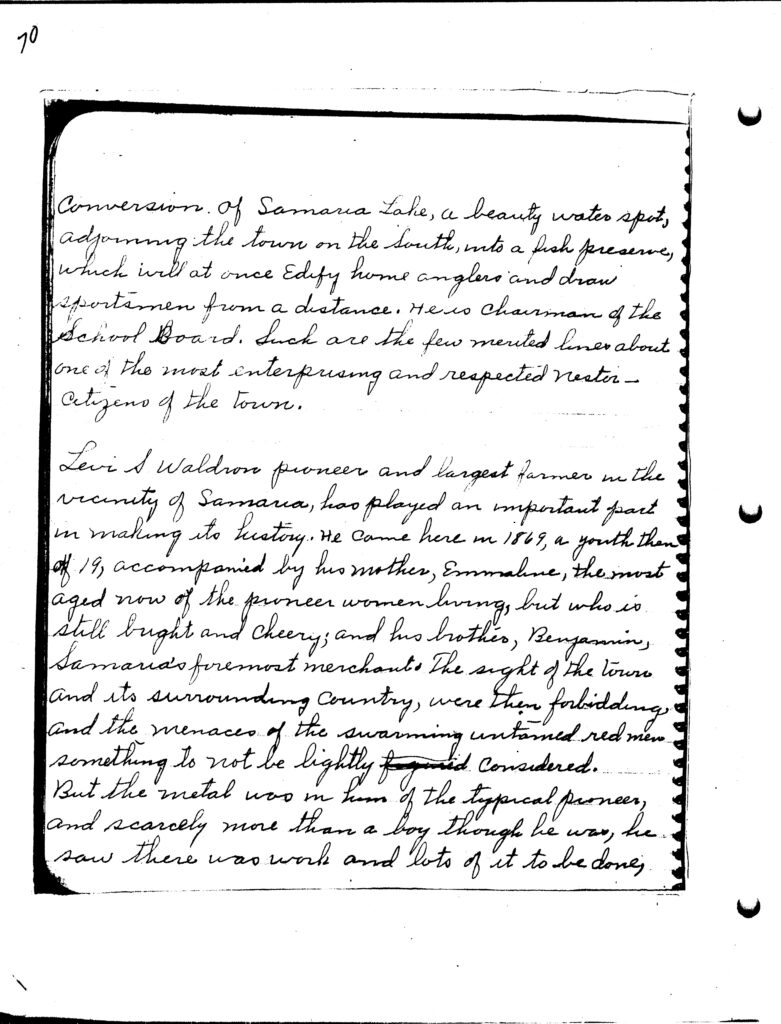 70
Conversion. Of Samaria Lake, a beauty water spot,
adjoining the town on the South, into a fish preserve,
which will at once Edify home anglers and draw
sportsmen from a distance. He is Chairman of the
School Board. Such are the few merited lines about
one of the most enterprising and respected Nestor-
Citizens of the town.
Levi S Waldron pioneer and largest farmer in the
vicinity of Samaria, has played an important part
in making its history. He came here in 1869, a youth then
of 19, accompanied by his mother, Emmaline, the most
aged now of the pioneer women living, but who is
still bright and Cheery; and his brother, Benjamin,
Samaria's foremost merchant. The sight of the town
and its surrounding Country, were then forbidding,
and the menaces of the swarming untamed red men
something to not be lightly Considered.
But the metal was in him of the typical pioneer,
and scarcely more than a boy though he was, he
saw there was work and lots of it to be done,